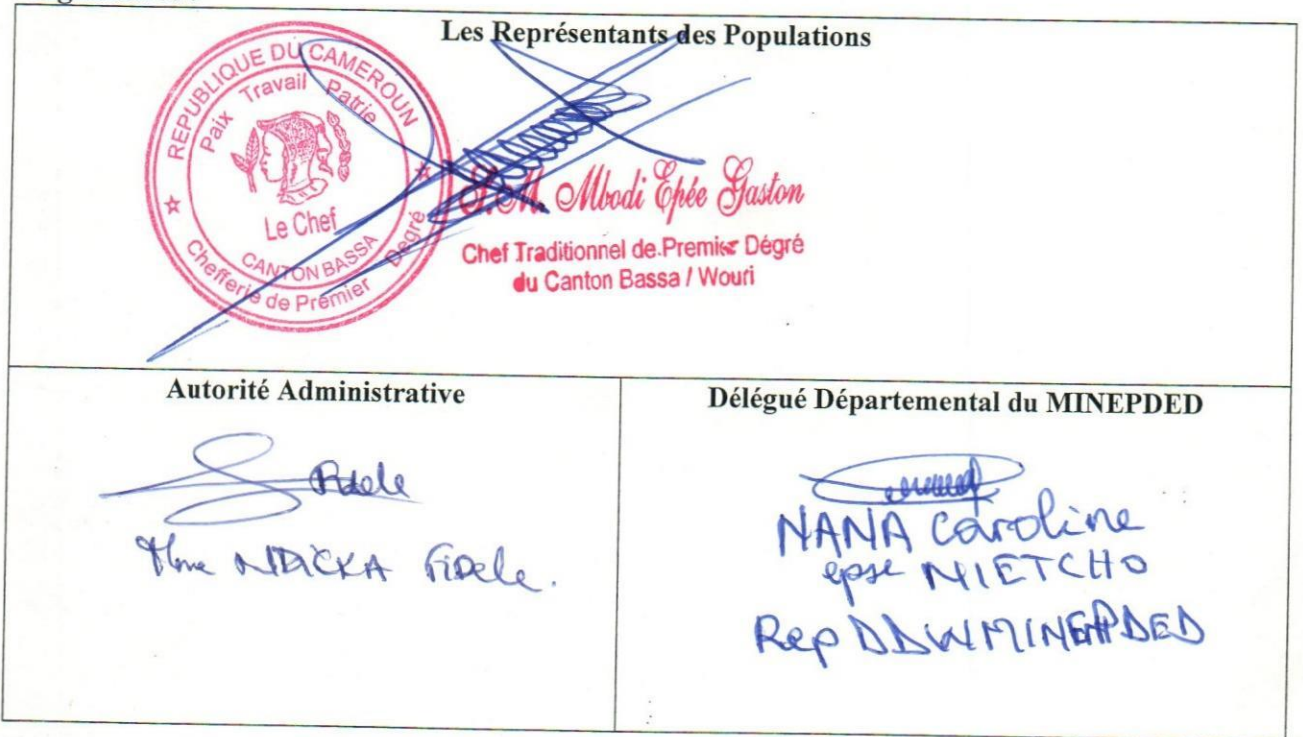 Les Représentants des Populations
REPUBLIQUE DU CAMEROUN
Paix Travail Patrie
Le Chef
CANTON BASSA
Chefferie de Prémier Dégré
S.M. Mbodi Epée Gaston
Chef Traditionnel de Premier Dégré
du Canton Bassa / Wouri
Autorité Administrative
Fidele
Mme NDICKA Fidele.
Délégué Départemental du MINEPDED
NANA Caroline
epse NIETCHO
Rep DDWMINEPDED